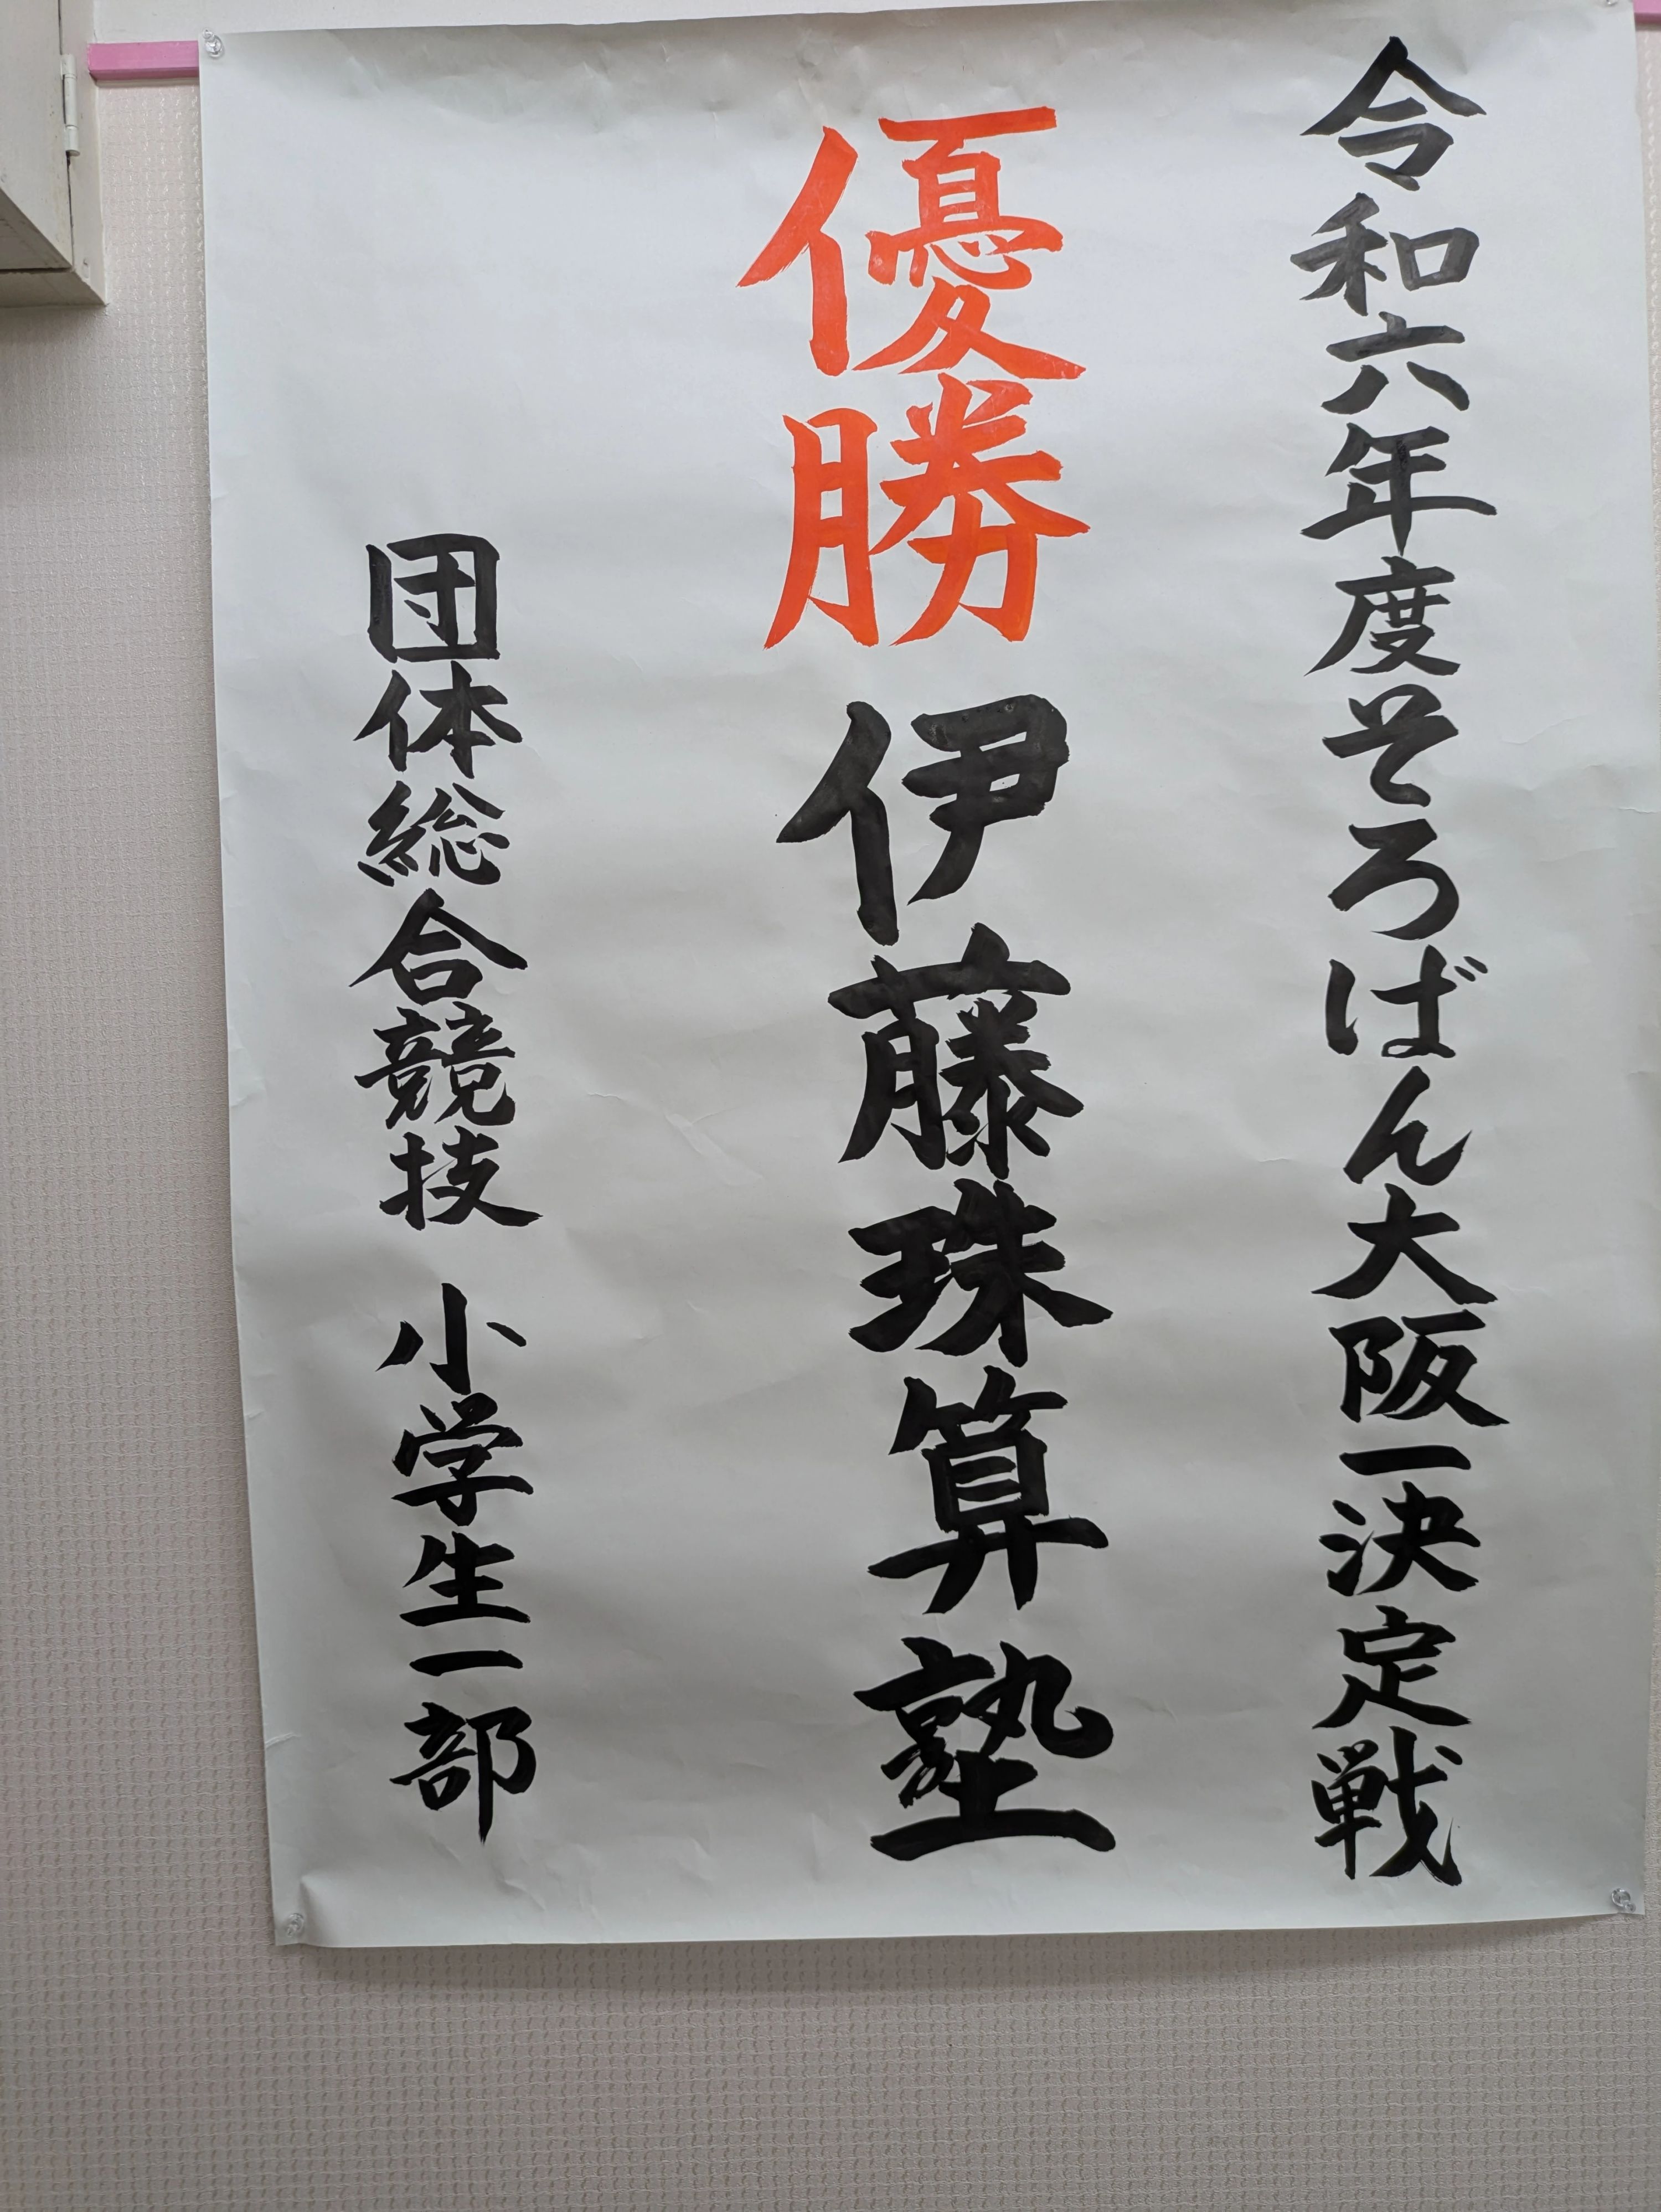 令和六年度そろばん大阪一決定戦
優勝 伊藤珠算塾
団体総合競技 小学生一部